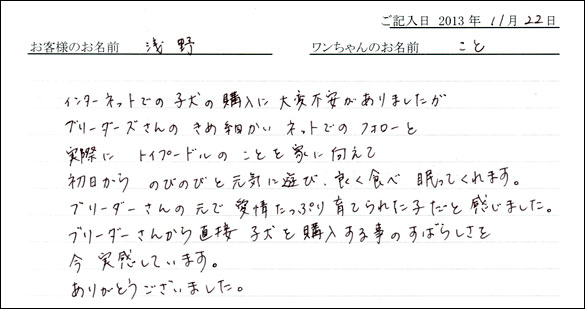 ご記入日 2013 年 11 月 22 日
お客様のお名前 浅野 ワンちゃんのお名前 こと
インターネットでの子犬の購入に大変不安がありましたが
ブリーダーズさんのきめ細かいネットでのフォローと
実際にトイプードルのことを家に向えて
初日からのびのびと元気に遊び、良く食べ眠ってくれます。
ブリーダーさんの元で愛情たっぷり育てられた子だと感じました。
ブリーダーさんから直接子犬を購入する事のすばらしさを
今実感しています。
ありがとうございました。